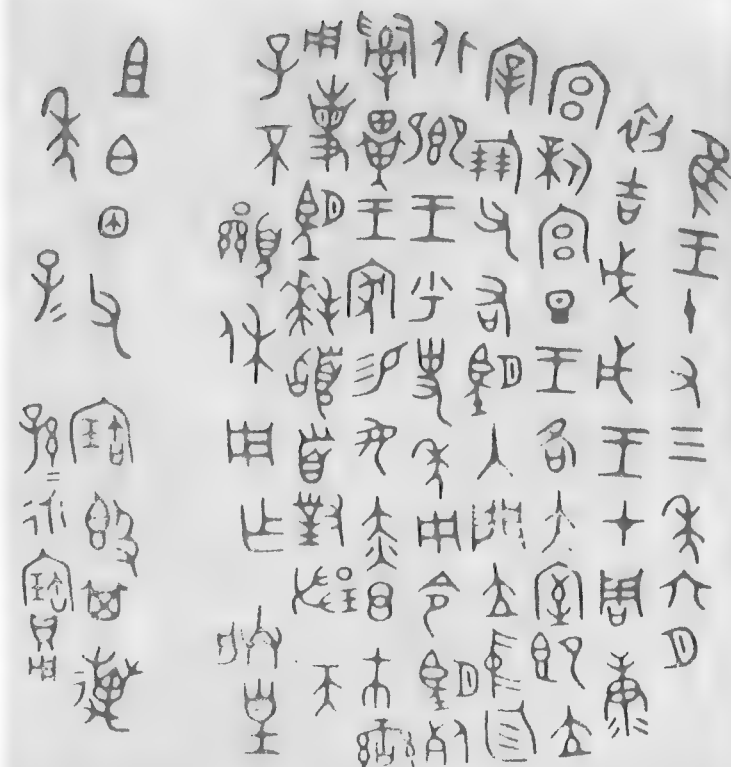 隹王十又三年六月
初吉戊戌王才周康
宮新宮旦王各大室即立
宰倗父右望入門立中廷
北鄉王乎史年冊令望死
𤔲畢王家易女赤⊖巿䜌
用事望拜𩒨首對揚天
子不顯休用乍朕皇
且白甲父寶𣪘其萬
年子=孫=永寶用